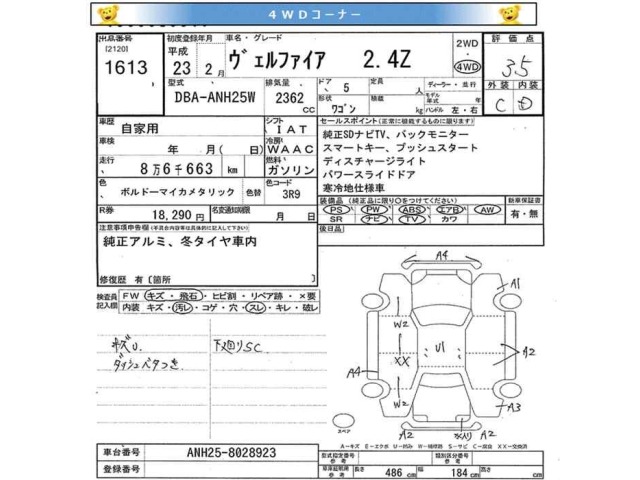 4WDコーナー
出品番号
[2120]
1613
初度登録年月
平成
23 2月
車名・グレード
ヴェルファイア 2.4Z
2WD
4WD
評価点
3.5
型式
DBA-ANH25W
排気量
2362 cc
ドア 5
定員 人
形状 ワゴン
積載 kg
ディーラー・並行
モデル年式 年
ハンドル 左・右
外装 内装
C D
車歴
自家用
シフト
IAT
車検
年 月(日)
冷房
WAAC
走行
8万6千663 km
燃料
ガソリン
色
ボルドーマイカメタリック
色替
色コード
3R9
R券
18,290 円
名変通知期限
月 日
セールスポイント(正常に機能するものに限ります)
純正SDナビTV、バックモニター
スマートキー、プッシュスタート
ディスチャージライト
パワースライドドア
寒冷地仕様車
装備品 (純正品に限り○をつけてください)
PS PW ABS エアB AW
SR ナビ TV カワ
新車保証書
有・無
後日品
注意事項申告欄(不具合内容等は具体的に記入して下さい)
純正アルミ、冬タイヤ車内
修復歴 有〔箇所
検査員記入欄
FW キズ・飛石・ヒビ割・リペア跡・×要
内装 キズ・汚レ・コゲ・穴・スレ・キレ・破レ
キズU.
ダッシュベタつき
下廻りSC
A4
A1
W2
U1
XX
A2
A4
W2
A3
A2
A2
スペア
A-キズ E-エクボ U-凹み W-補修跡 S-サビ C-腐食 XX-交換済
車台番号
ANH25-8028923
登録番号
型式指定番号
参考
類別区分番号
参考
長さ 486 cm
幅 184 cm
高さ cm